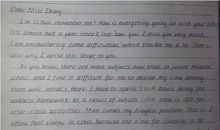 Dear Miss Zhang,
I'm Li Hua, remember me? How is everything going on with your life
It's almost half a year since I last saw you. I miss you very much.
I am encountering some difficulties which trouble me a lot. That's
also why I write this letter to you.
As you know, there are more subjects now than in junior middle
school, and I find it difficult for me to devide my time among
them well. What's more, I have to spend 3 to 4 hours doing the
endless homework as a result of which little time is left for
after-class activities. Then comes my biggest problem. That is I
often feel sleepy in class because the time for sleeping is so